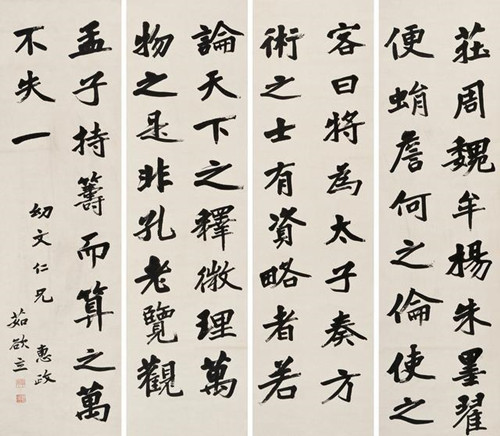 莊周魏牟楊朱墨翟
便蜎詹何之倫使之
客曰將為太子奏方
術之士有資略者若
論天下之釋微理萬
物之是非孔老覽觀
孟子持籌而算之萬
不失一
幼文仁兄 惠政
茹欲立